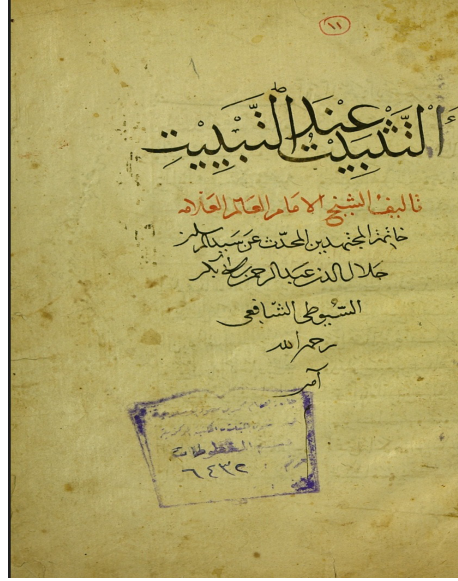 ١١
التَّثبِيتُ عِندَ التَّبْيِيتِ
تاليف الشيخ الامام العالم العلامه
خاتمة المجتهدين المحدّث عن سيد المرسلين
جلال الدين عبد الرحمن بن ابى بكر
السّيوطى الشّافعى
رحمه الله
آمين
قسم المخطوطات
٦٤٣٢